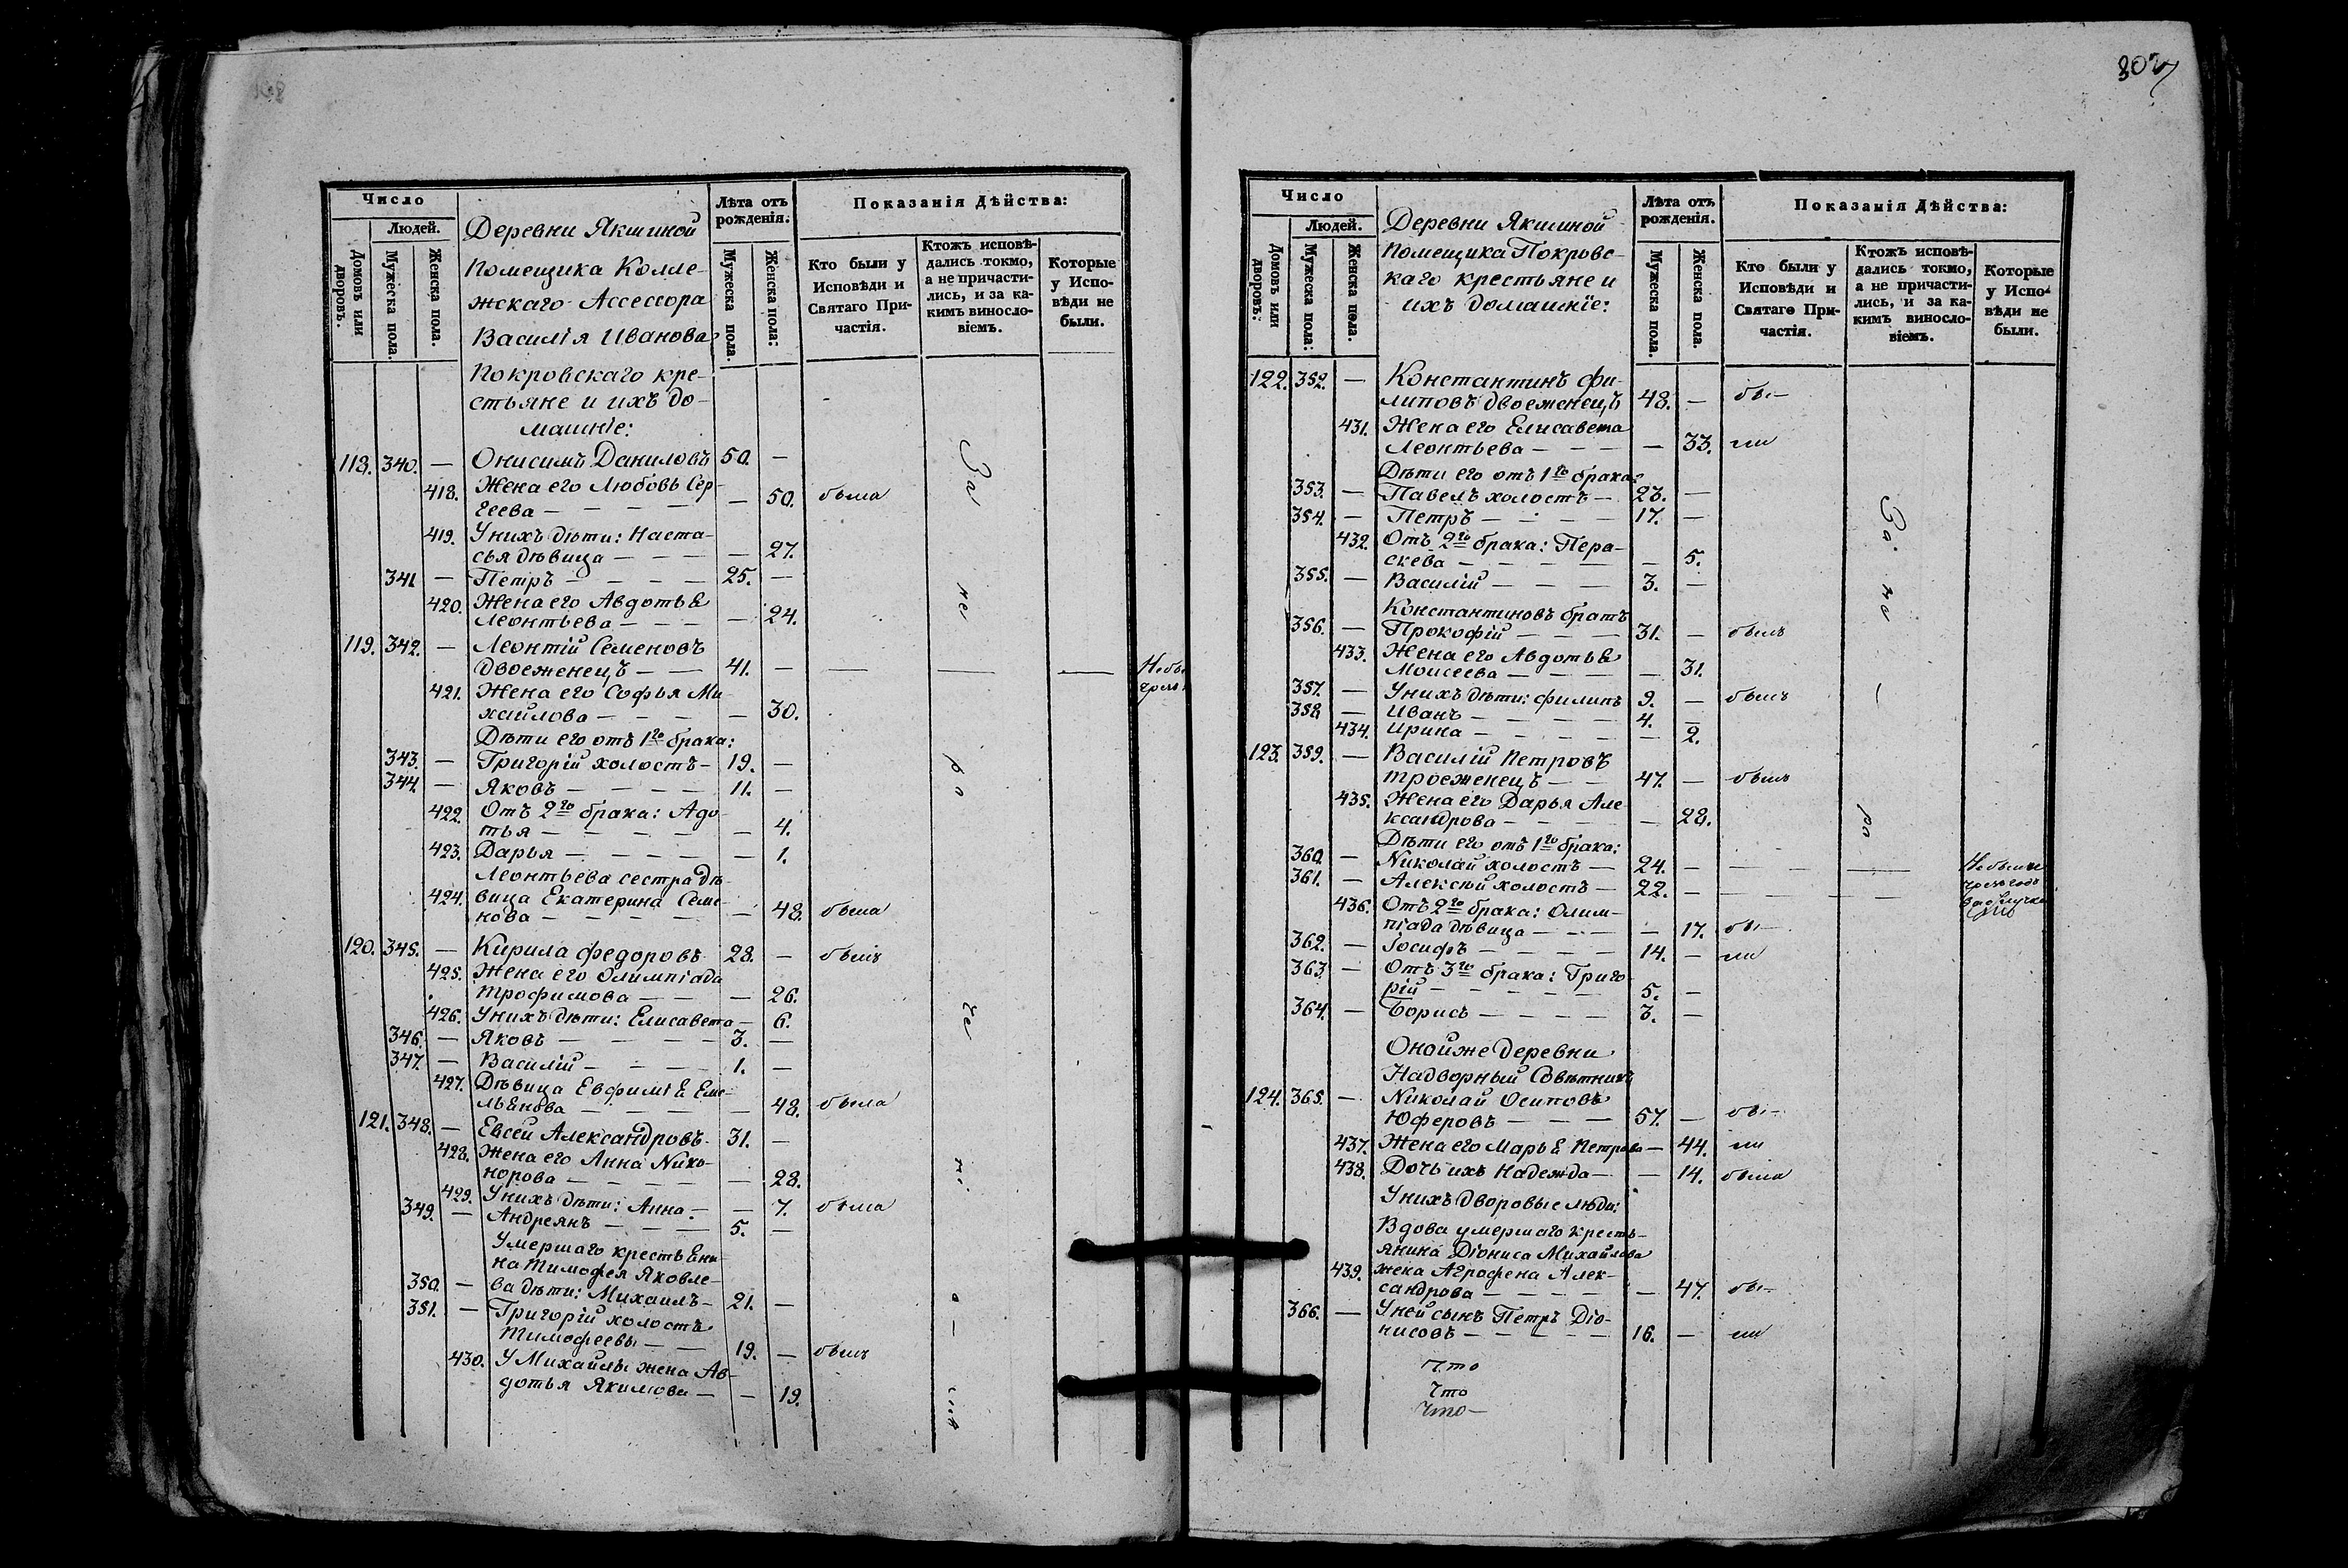 307
Число
Людей.
Домовъ или дворовъ.
Мужеска пола.
Женска пола.
Деревни Якшиной
Помещика Колле-
жскаго Ассессора
Василія Иванова
Лѣта отъ рожденія.
Мужеска пола.
Женска пола:
Показанія Дѣйства:
Кто были у Исповѣди и Святаго При- частія.
Ктожъ исповѣ- дались токмо, а не причасти- лись, и за ка- кимъ винословіемъ.
Которые у Испо- вѣди не были.
Покровскаго кре-
стьяне и ихъ до-
машніе:
118. 340. — Онисимъ Даниловъ 50. —
418. Жена его Любовь Сер-
геева — — — — — 50. была
419. У нихъ дѣти: Наста-
сья дѣвица — — — — 27.
341. — Петръ — — — — 25. —
420. Жена его Авдотья
Леонтьева — — — — 24.
119. 342. — Леонтій Семеновъ
двоеженецъ — — 41. — — — —
421. Жена его Софья Ми-
хайлова — — — — — 30.
Дѣти его отъ 1го брака:
343. — Григорій холостъ — 19. —
344. — Яковъ — — — — 11. —
422. Отъ 2го брака: Авдо-
тья — — — — — 4.
423. Дарья — — — — — 1.
Леонтьева сестра дѣ-
424. вица Екатерина Семе-
нова — — — — — 48. была
120. 345. — Кирила Федоровъ 28. — былъ
425. Жена его Олимпіада
Трофимова — — — 26.
426. У нихъ дѣти: Елисавета — 6.
346. — Яковъ — — — — 3. —
347. — Василій — — — 1. —
427. Дѣвица Евфимія Еме-
льянова — — — — 48. была
121. 348. — Евсей Александровъ 31. —
428. Жена его Анна Ника-
норова — — — — — 28.
429. У нихъ дѣти: Анна — — 7. была
349. — Андреянъ — — — 5. —
Умершаго крестьяни-
на Тимофея Яковле-
350. — ва дѣти: Михаилъ — 21. —
351. — Григорій холостъ
Тимофеевы — — 19. — былъ
430. У Михайлы жена Ав-
дотья Якимова — — 19.
Число
Людей.
Домовъ или дворовъ:
Мужеска пола:
Женска пола.
Деревни Якшиной
Помещика Покровс-
каго крестьяне и
ихъ домашніе:
Лѣта отъ рожденія.
Мужеска пола.
Женска пола.
Показанія Дѣйства:
Кто были у Исповѣди и Святаго При- частія.
Ктожъ исповѣ- дались токмо, а не причасти- лись, и за ка- кимъ винословіемъ.
Которые у Испо- вѣди не были.
122. 352. — Константинъ Фи-
липовъ двоеженецъ 48. — бы—
431. Жена его Елисавета
Леонтьева — — — — 33. ли
Дѣти его отъ 1го брака:
353. — Павелъ холостъ — 23. —
354. — Петръ — — — — 17. —
432. Отъ 2го брака: Пара-
скева — — — — — 5.
355. — Василій — — — 3. —
Константиновъ братъ
356. — Прокофій — — — 31. — былъ
433. Жена его Авдотья
Моисеева — — — — 31.
357. — У нихъ дѣти: Филипъ 9. — былъ
358. — Иванъ — — — — 4. —
434. Ирина — — — — — 2.
123. 359. — Василій Петровъ
троеженецъ — — 47. — былъ
435. Жена его Дарья Але-
ксандрова — — — — 28.
Дѣти его отъ 1го брака:
360. — Николай холостъ — 24. — — — Не были
361. — Алексѣй холостъ — 22. — — —
436. Отъ 2го брака: Олим-
піада дѣвица — — — — 17. бы—
362. — Іосифъ — — — — 14. — ли
363. — Отъ 3го брака: Григо-
рій — — — — — 5. —
364. — Борисъ — — — — 3. —
Оной же деревни
Надворный Совѣтникъ
124. 365. — Николай Осиповъ
Юферовъ — — — 57. — бы—
437. Жена его Марья Петрова — 44. ли
438. Дочь ихъ Надежда — — 14. была
У нихъ дворовые люди:
Вдова умершаго кресть-
янина Діониса Михайлова
439. жена Аграфена Алек-
сандрова — — — — 47. бы—
366. — У ней сынъ Петръ Діо-
нисовъ — — — — 16. — ли
Что
Что
Что—